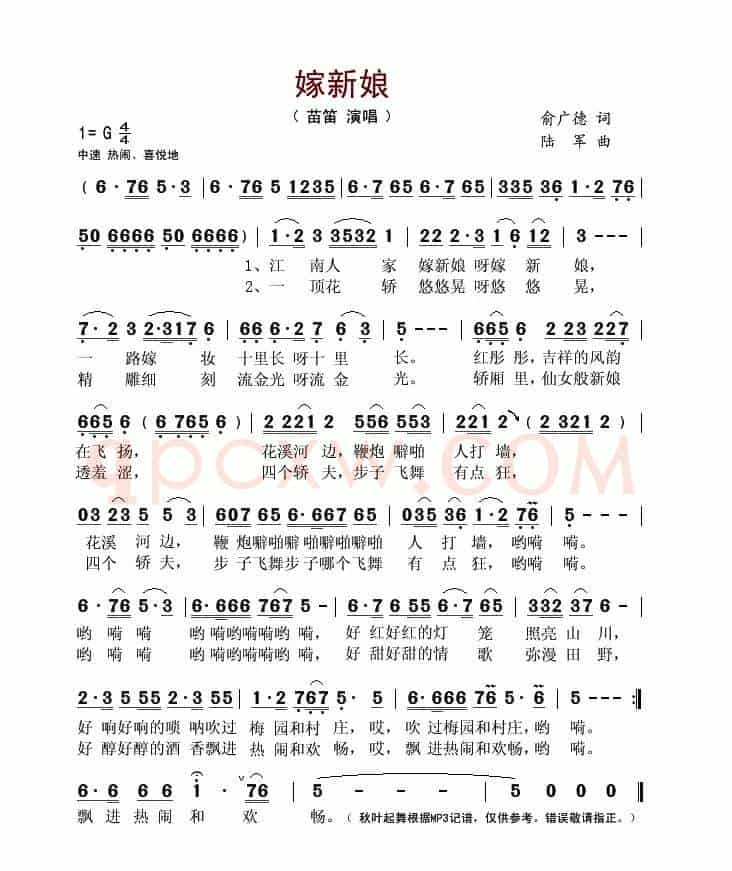 嫁新娘
( 苗笛 演唱 )
俞广德 词
1= G 4/4
陆 军 曲
中速 热闹、喜悦地
( 6·76 5·3 | 6·76 5 1235 | 6·7 65 6·7 65 | 335 36 1·2 76 |
50 6666 50 6666 ) | 1·2 3 3532 1 | 22 2·3 1 6 12 | 3 - - - |
1、江 南人 家 嫁新娘 呀嫁 新 娘,
2、一 顶花 轿 悠悠晃 呀悠 悠 晃,
7· 2 3 2·317 6 | 66 6·1 2 7 6 3 | 5· - - | 665 6 2 23 227 |
一 路嫁 妆 十里长 呀十 里 长。 红彤 彤,吉祥的风韵
精 雕细 刻 流金光 呀流 金 光。 轿厢 里,仙女般新娘
665 6 ( 6 765 6 ) | 2 221 2 556 553 | 221 2 ( 2 321 2 ) |
在飞 扬, 花溪河 边,鞭炮 噼啪 人打 墙,
透羞 涩, 四个轿 夫,步子 飞舞 有点 狂,
qpcxw.COM
03 23 5 5 | 607 65 6·667 65 | 035 36 1·2 76 | 5 - - - |
花溪 河 边, 鞭 炮噼啪噼 啪噼啪噼啪 人 打 墙,哟嗬 嗬。
四个 轿 夫, 步 子飞舞步子哪个飞舞 有 点 狂,哟嗬 嗬。
6·76 5·3 | 6·666 767 5 - | 6·7 65 6·7 65 | 332 37 6 - |
哟 嗬 嗬 哟 嗬哟嗬嗬嗬 嗬, 好 红好红的灯 笼 照亮 山 川,
哟 嗬 嗬 哟 嗬哟嗬嗬嗬 嗬, 好 甜好甜的情 歌 弥漫 田 野,
2·3 55 2·3 55 | 2·2 767 5· 5 | 6·666 765 5·6 | 5 - - - :||
好 响好响的唢 呐吹过 梅 园和村 庄,哎, 吹 过梅园和村庄,哟 嗬。
好 醇好醇的酒 香飘进 热 闹和欢 畅,哎, 飘 进热闹和欢畅,哟 嗬。
6· 6 6 6 1 · 76 | 5 - - - | 5 0 0 0 ||
飘 进 热 闹 和 欢 畅。 ( 秋叶起舞根据MP3记谱,仅供参考。错误敬请指正。)